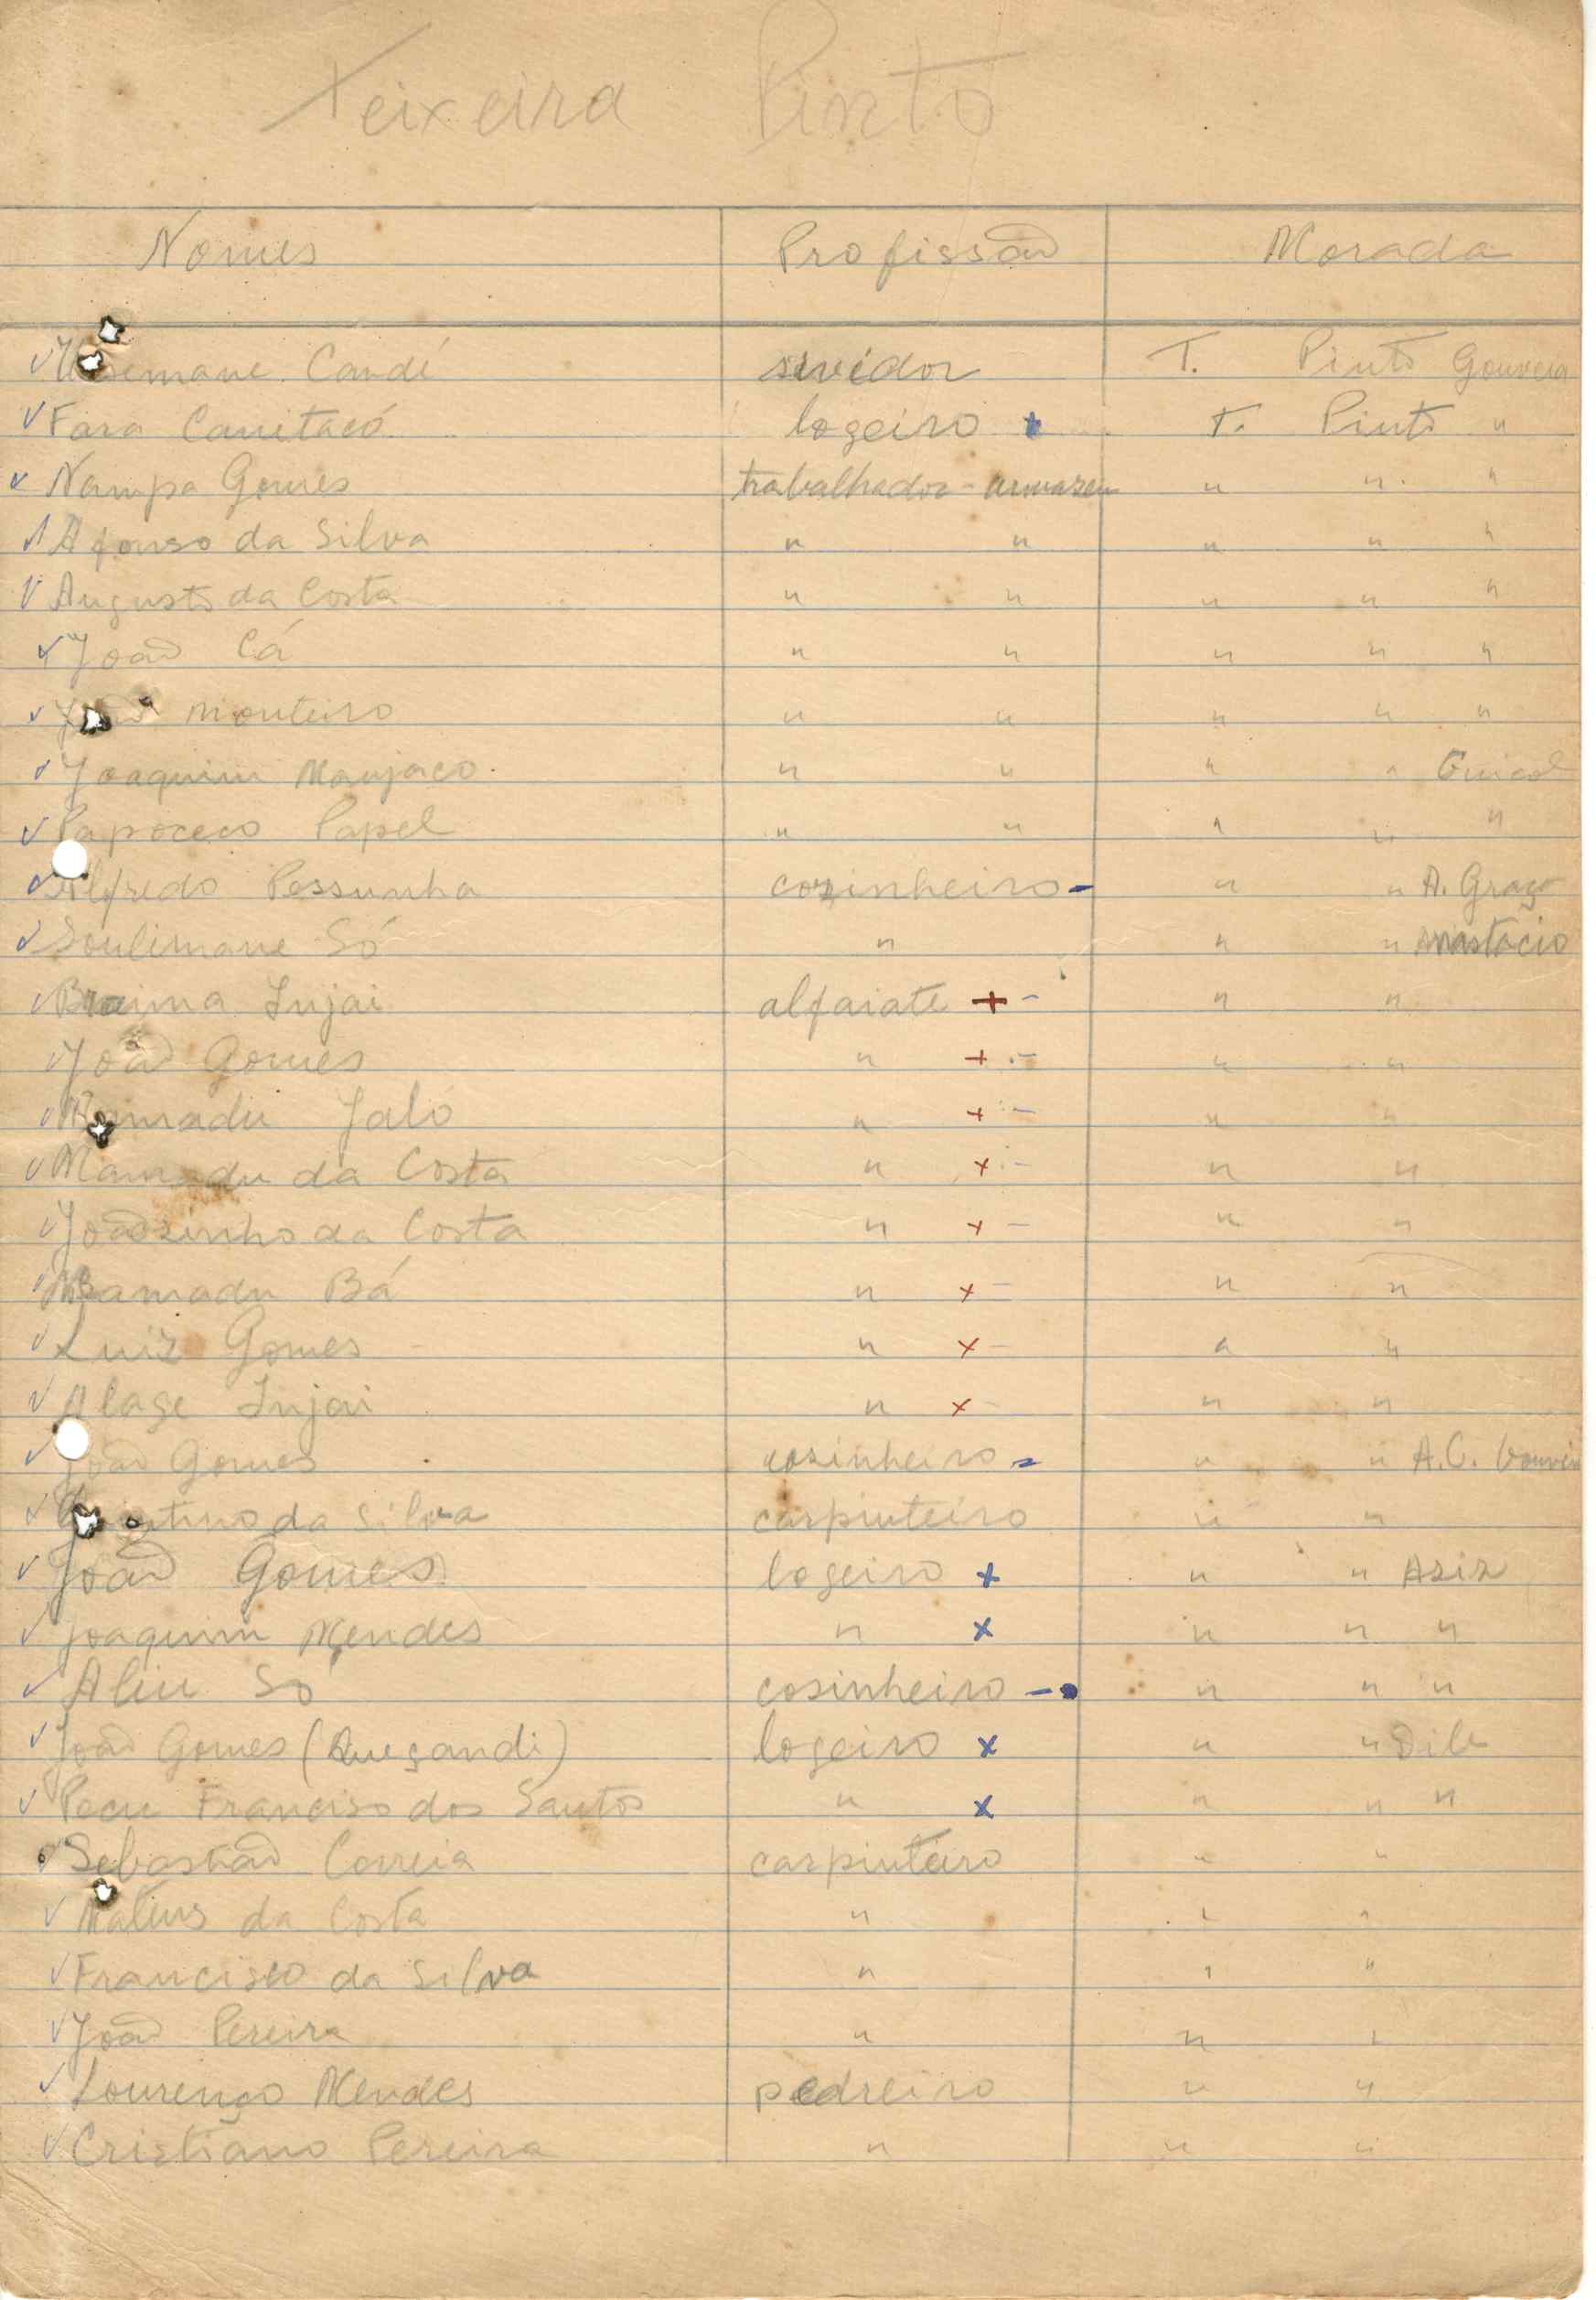 Teixeira Pinto
Nomes Profissão Morada
Candé servidor T. Pinto Gouveia
Fara Canitacó logeiro + T. Pinto "
Nampa Gomes trabalhador-armazem " " "
Afonso da Silva " " " " "
Augusto da Costa " " " " "
João Cá " " " " "
João Monteiro " " " " "
Joaquim Manjaco " " " "
Papoceco Papel " " " " "
Alfredo Pessunha cozinheiro - " " A. Graça
Soulimane Só " " " Anastácio
Braima Injai alfaiate + - " "
João Gomes " + - " "
Mamadu Jaló " + - " "
Mamadu da Costa " + - " "
Joãozinho da Costa " + - " "
Mamadu Bá " + - " "
Luiz Gomes " + - " "
Alage Injai " + - " "
João Gomes cosinheiro - " " A.C.
da Silva carpinteiro " "
João Gomes logeiro + " " Aziz
Joaquim Mendes " x " " "
Aliu Só cosinheiro - " " "
João Gomes (Queçandi) logeiro x " "
Francisco dos Santos " x " " "
Sebastião Correia carpinteiro " "
Mateus da Costa " " "
Francisco da Silva " " "
João Pereira " " "
Lourenço Mendes pedreiro " "
Cristiano Pereira " " "